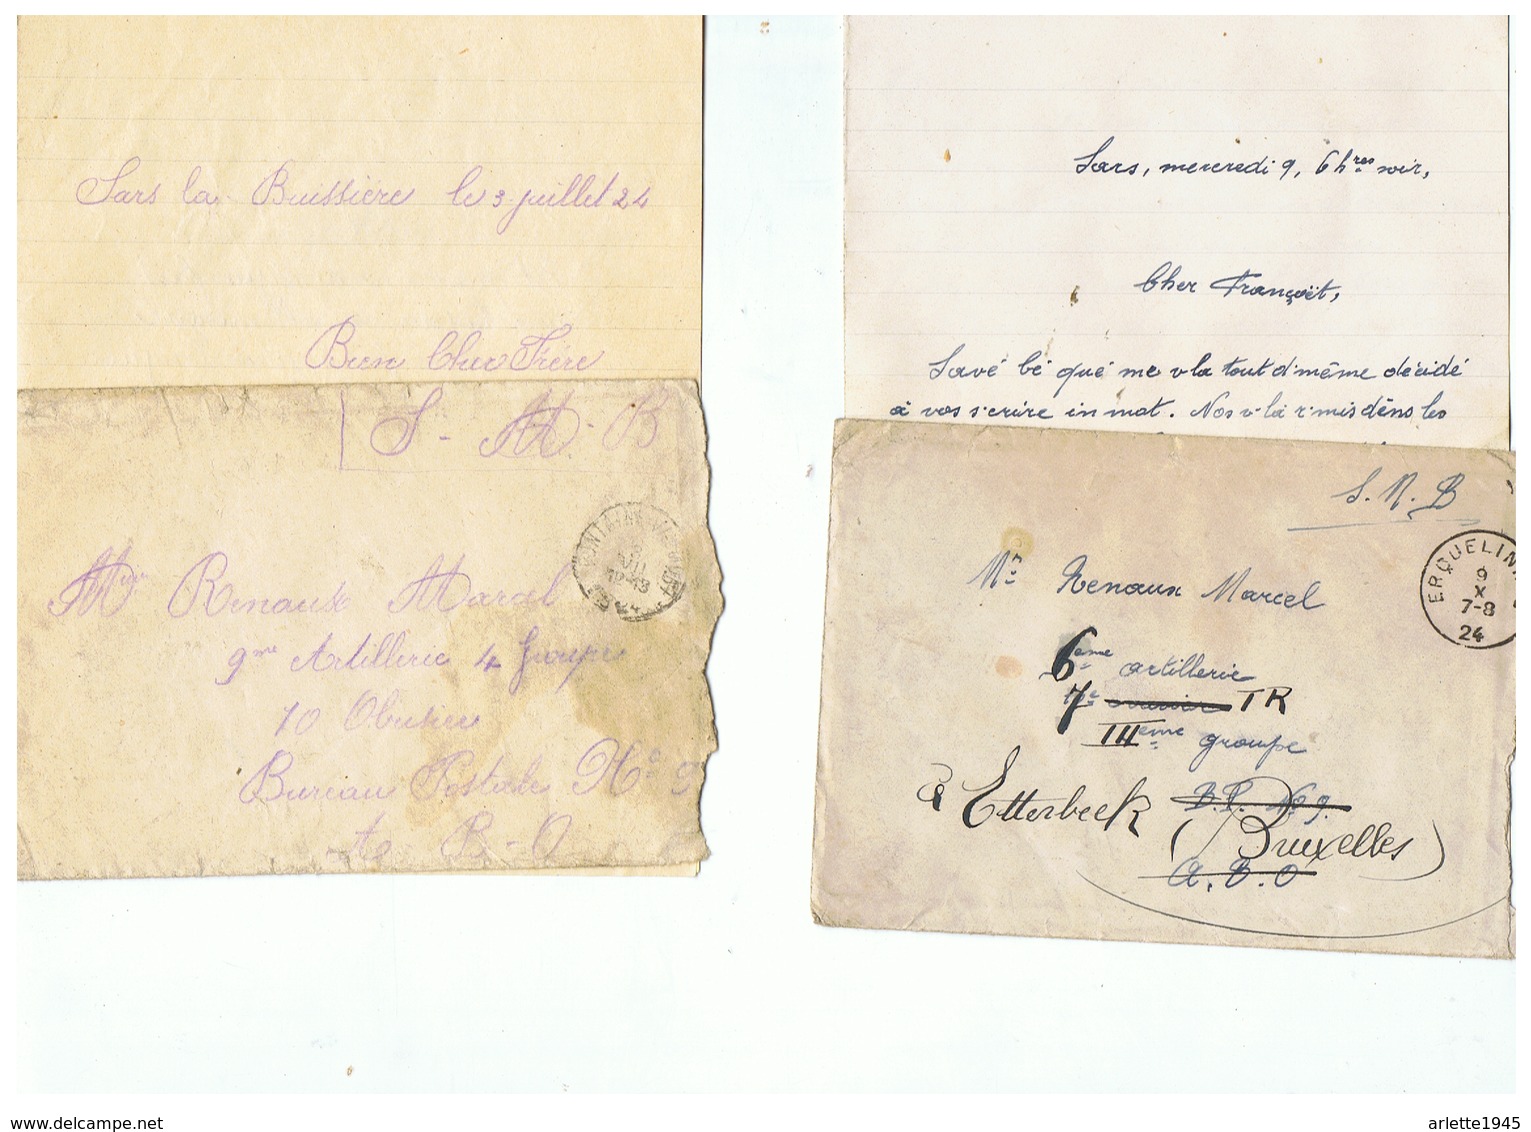 Sars la Buissière le 3 juillet 24
Bien Cher Frère
S - M - B
FONTAINE-VALMONT
12-13
24
Mr Renaux Marcel
9me Artillerie 4 Groupe
10 Obusier
Bureau Postale No 5
A B-O
Sars, mercredi 9, 6 hres soir,
Cher Françwèt,
Savé bé qué me v'la tout d'même décidé
à vos s'crire in mot. Nos v'là r'mis dèns les
S. M. B
ERQUELINN
9
X
7-8
24
Mr Renaux Marcel
6eme artillerie
7e TR
IIIeme groupe
B.P. No 9.
à Etterbeek
(Bruxelles)
A. B. O
www.delcampe.net
arlette1945